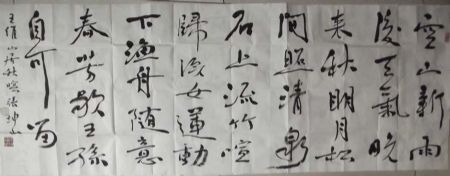 空山新雨
後天氣晚
来秋明月松
間照清泉
石上流竹喧
歸浣女蓮動
下漁舟随意
春芳歇王孫
自可留
王維山居秋暝